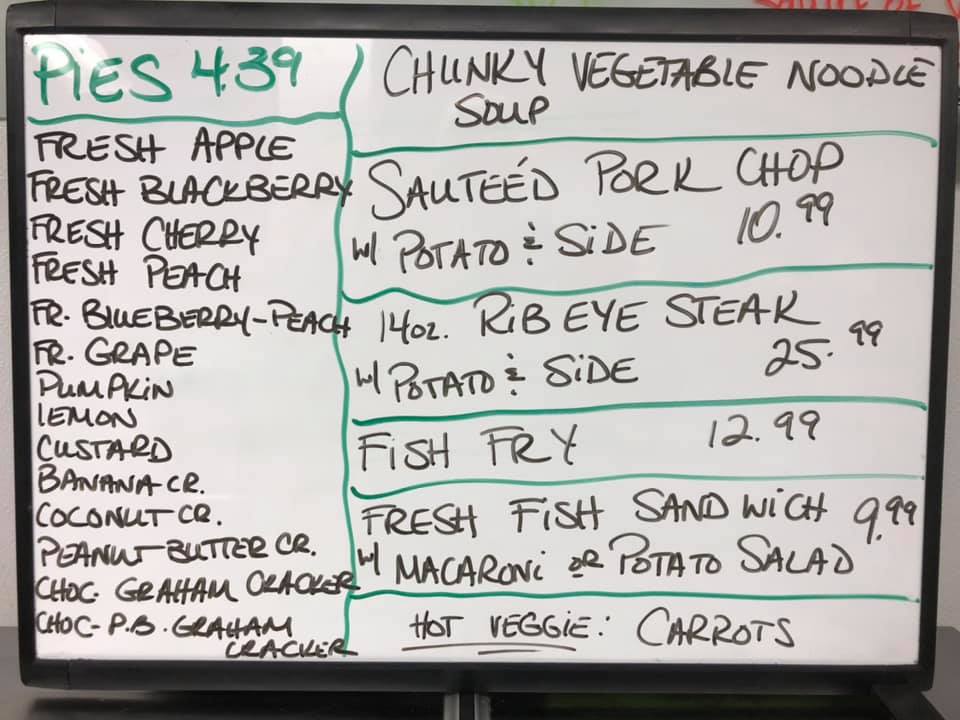 PiES 4.39
FRESH APPLE
FRESH BLACKBERRY
FRESH CHERRY
FRESH PEACH
FR. BLUEBERRY-PEACH
FR. GRAPE
PUMPKIN
LEMON
CUSTARD
BANANA CR.
COCONUT CR.
PEANUT-BUTTER CR.
CHOC. GRAHAM CRACKER
CHOC-P.B. GRAHAM
CRACKER
CHUNKY VEGETABLE NOODLE
SOUP
SAUTEÉD PORK CHOP
W/ POTATO & SiDE 10.99
14oz. RiB EYE STEAK
W/ POTATO & SiDE 25.99
FiSH FRY 12.99
FRESH FiSH SANDWiCH 9.99
W/ MACARONi OR POTATO SALAD
HOT VEGGIE: CARROTS